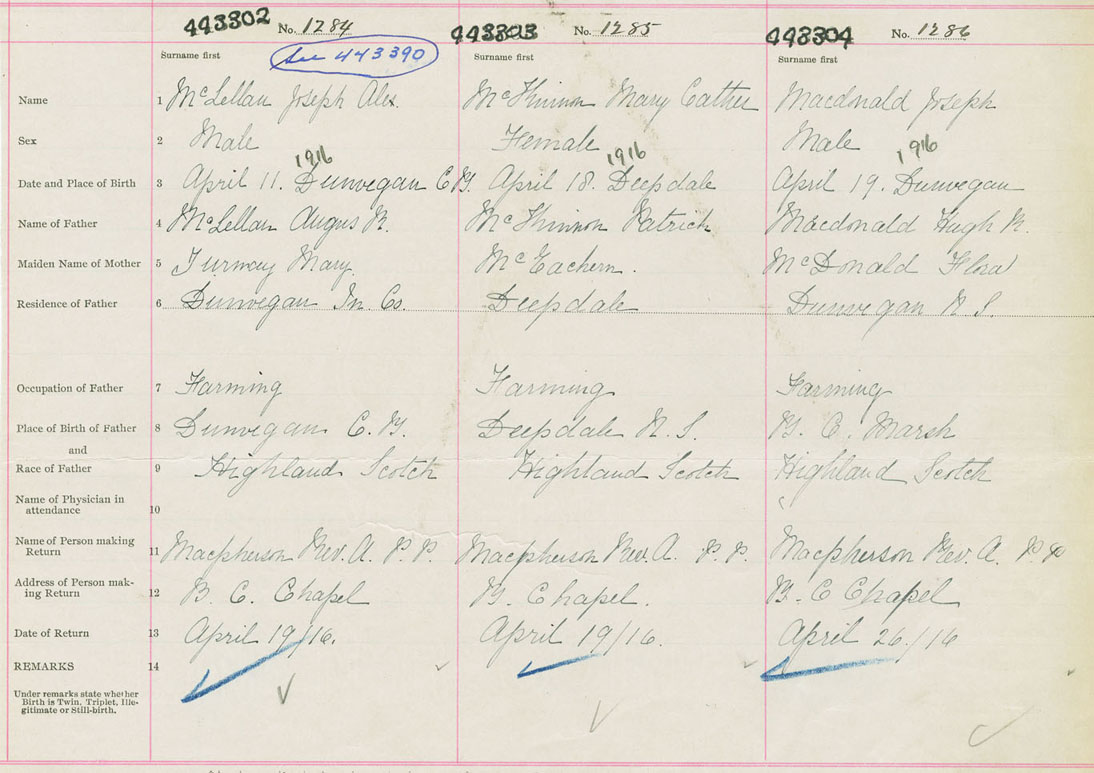 443302 No. 1284 443303 No. 1285 443304 No. 1286
Surname first See 443390 Surname first Surname first
Name 1 McLellan Joseph Alex. McKinnon Mary Cather Macdonald Joseph
Sex 2 Male Female Male
1916 1916 1916
Date and Place of Birth 3 April 11. Dunvegan C.B. April 18. Deepdale April 19. Dunvegan
Name of Father 4 McLellan Angus R. McKinnon Patrick Macdonald Hugh R.
Maiden Name of Mother 5 Mary McEachern. McDonald Flora
Residence of Father 6 Dunvegan In. Co. Deepdale Dunvegan N.S.
Occupation of Father 7 Farming Farming Farming
Place of Birth of Father 8 Dunvegan C.B. Deepdale N.S. B. C. Marsh
and
Race of Father 9 Highland Scotch Highland Scotch Highland Scotch
Name of Physician in
attendance 10
Name of Person making
Return 11 Macpherson Rev. A. P.P. Macpherson Rev. A. P.P. Macpherson Rev. A. P.P
Address of Person mak-
ing Return 12 B. C. Chapel B. Chapel. B. C Chapel
Date of Return 13 April 19/16. April 19/16. April 26/16
REMARKS 14
Under remarks state whether
Birth is Twin, Triplet, Ille-
gitimate or Still-birth.